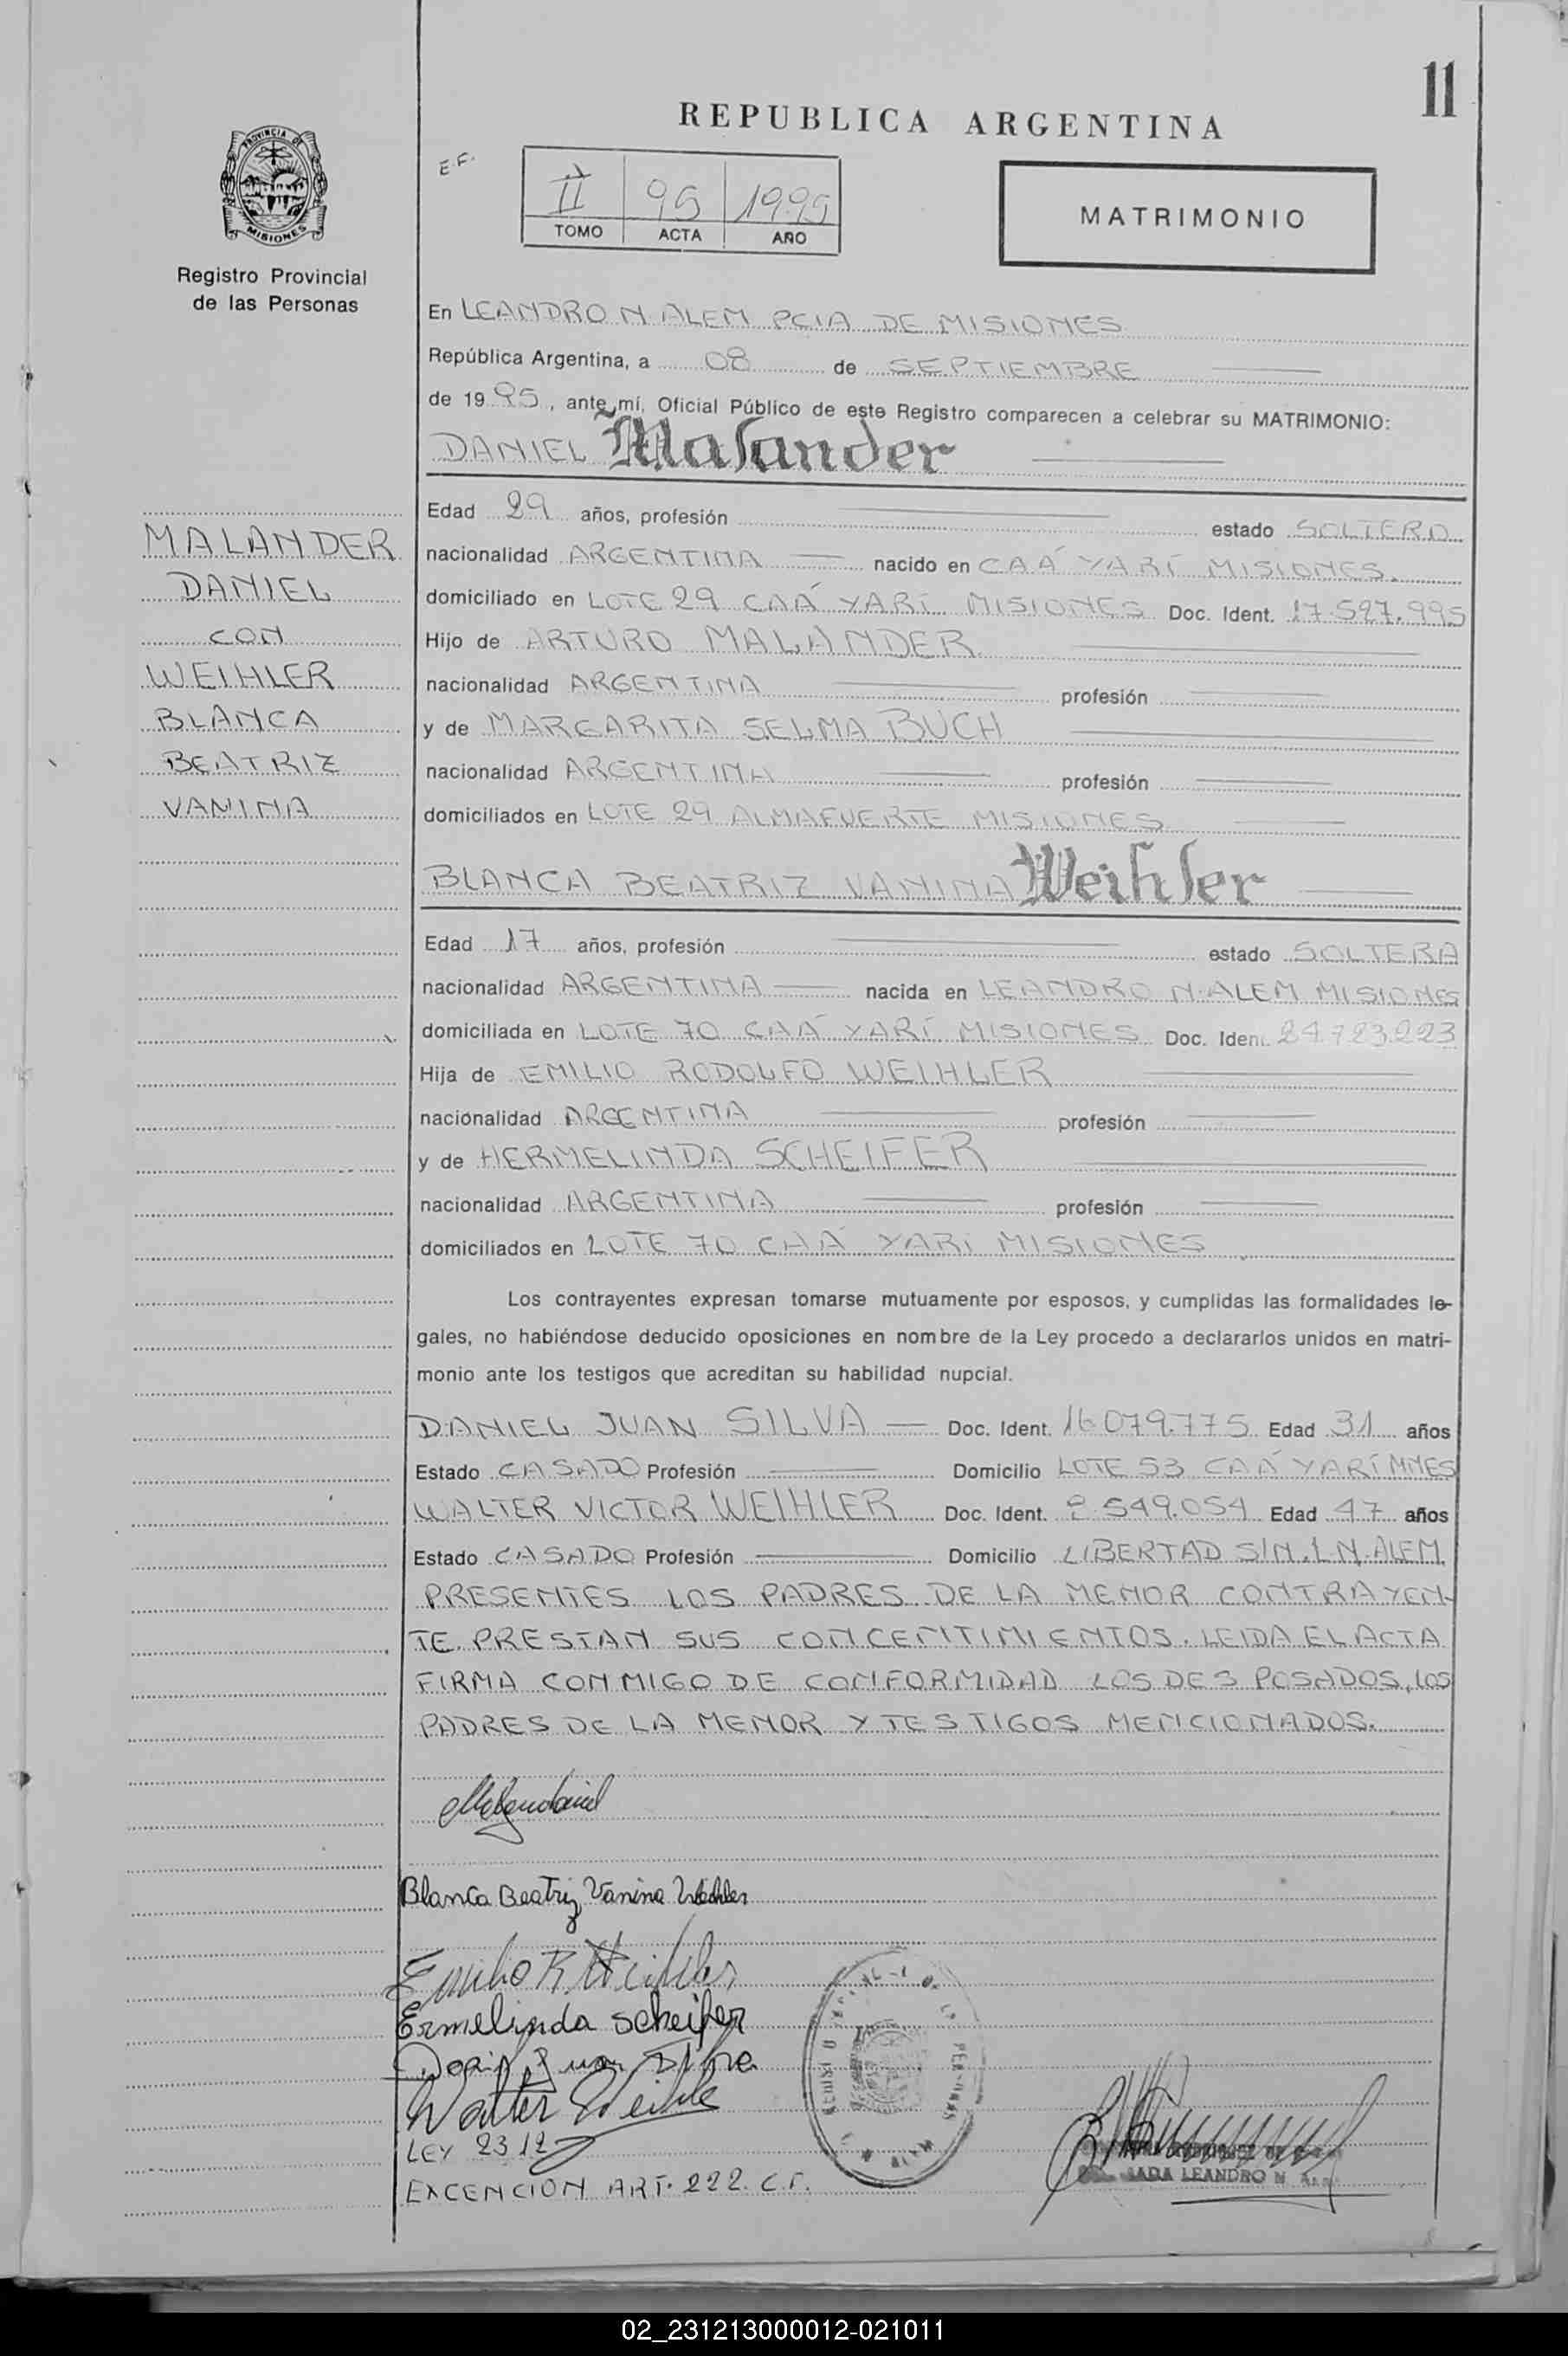 11
REPUBLICA ARGENTINA
PROVINCIA DE
MISIONES
Registro Provincial
de las Personas
E.F.
II 95 1995
TOMO ACTA AÑO
MATRIMONIO
En LEANDRO N ALEM PCIA DE MISIONES
República Argentina, a 08 de SEPTIEMBRE
de 1995, ante mí, Oficial Público de este Registro comparecen a celebrar su MATRIMONIO:
DANIEL Malander
MALANDER
DANIEL
CON
WEIHLER
BLANCA
BEATRIZ
VANINA
Edad 29 años, profesión estado SOLTERO
nacionalidad ARGENTINA nacido en CAÁ YARÍ MISIONES.
domiciliado en LOTE 29 CAÁ YARÍ MISIONES Doc. Ident. 17.527.995
Hijo de ARTURO MALANDER
nacionalidad ARGENTINA profesión
y de MARGARITA SELMA BUCH
nacionalidad ARGENTINA profesión
domiciliados en LOTE 29 ALMAFUERTE MISIONES
BLANCA BEATRIZ VANINA Weihler
Edad 17 años, profesión estado SOLTERA
nacionalidad ARGENTINA nacida en LEANDRO N. ALEM MISIONES
domiciliada en LOTE 70 CAÁ YARÍ MISIONES Doc. Ident. 24.723.223
Hija de EMILIO RODOLFO WEIHLER
nacionalidad ARGENTINA profesión
y de HERMELINDA SCHEIFER
nacionalidad ARGENTINA profesión
domiciliados en LOTE 70 CAÁ YARÍ MISIONES
Los contrayentes expresan tomarse mutuamente por esposos, y cumplidas las formalidades le-
gales, no habiéndose deducido oposiciones en nombre de la Ley procedo a declararlos unidos en matri-
monio ante los testigos que acreditan su habilidad nupcial.
DANIEL JUAN SILVA Doc. Ident. 16.079.775 Edad 31 años
Estado CASADO Profesión Domicilio LOTE 53 CAÁ YARÍ MNES
WALTER VICTOR WEIHLER Doc. Ident. 8.549.054 Edad 47 años
Estado CASADO Profesión Domicilio LIBERTAD S/N. L.N. ALEM
PRESENTES LOS PADRES DE LA MENOR CONTRAYEN-
TE PRESTAN SUS CONCENTIMIENTOS. LEIDA EL ACTA
FIRMA CONMIGO DE CONFORMIDAD LOS DESPOSADOS, LOS
PADRES DE LA MENOR Y TESTIGOS MENCIONADOS.
Blanca Beatriz Vanina Weihler
Emilio R. Weihler
Ermelinda Scheifer
Daniel Juan Silva
Walter Weihle
LEY 23.12
EXCENCION ART. 222. C.F.
LEANDRO N.
02_231213000012-021011